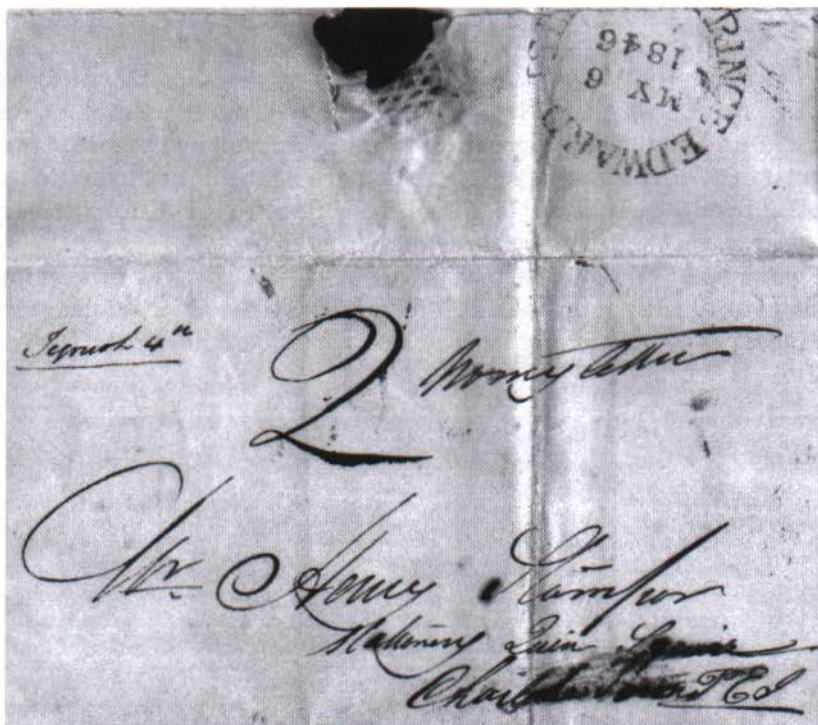 PRINCE EDWARD
MY 6
1846
4th
2 Money letter
Mr. Henry Stamper
Stationery Quen Square
Charlottetown P E I